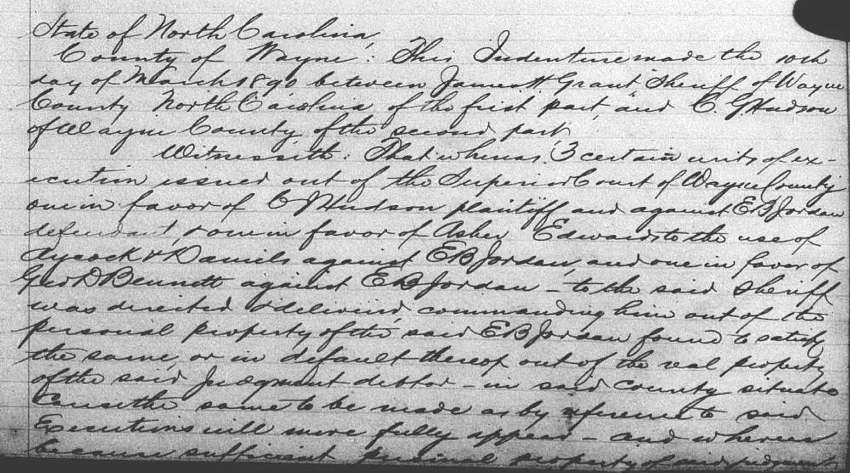 State of North Carolina,
County of Wayne: This Indenture made the 10th
day of March 1890 between James H Grant, Sheriff of Wayne
County North Carolina of the first part, and C. G Hudson
of Wayne County, of the second part
Witnesseth: That whereas, 3 certain writs of ex-
ecution issued out of the Superior Court of Wayne County
one in favor of C Hudson plaintiff and against E B Jordan
defendant, & one in favor of Asher Edwards to the use of
Aycock & Daniels against E B Jordan, and one in favor of
Geo D Bennett against E B Jordan - to the said Sheriff
was directed & delivered, commanding him out of the
personal property of the said E B Jordan found to satisfy
the same, or in default thereof out of the real property
of the said Judgment debtor - in said County situate
Cause the same to be made as by reference to said
Executions will more fully appear - and whereas
because sufficient personal property of said judgment